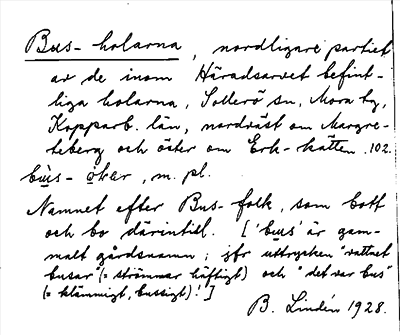 Bus-holarna, nordligare partiet
av de inom Häradsarvet befint-
liga holarna, Sollerö sn, Mora tg,
Kopparb. län, nordväst om Margre-
teberg och öster om Erk-hätten. 102.
bùs-ò̱kar, m. pl.
Namnet efter Bus-folk, som bott
och bo därintill. ['bus' är gam-
malt gårdsnamn; jfr uttrycken "vattnet
busar" (= strömmar häftigt) och "det var bus"
(= klämmigt, bussigt).']
B. Lindén 1928.